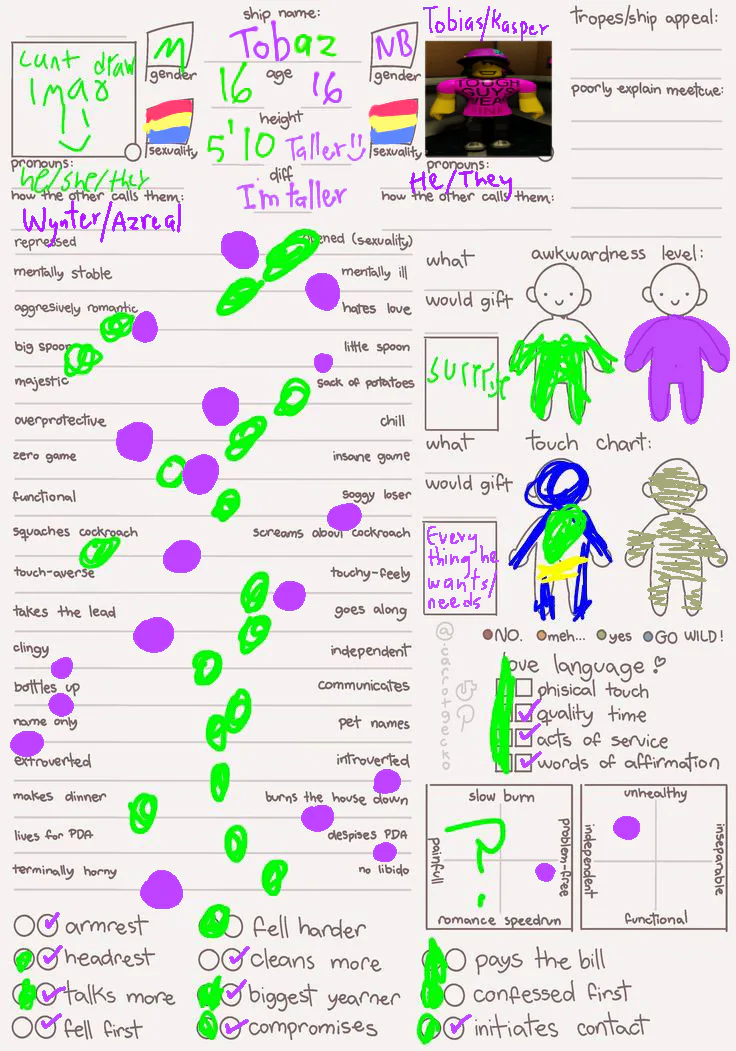 ship name:
Tobaz
Tobias/Kasper
tropes/ship appeal:
cunt draw
imao
M
gender
16
age
16
NB
gender
TOUGH
GUYS
WEAR
PINK
poorly explain meetcue:
height
5'10
Taller
sexuality
sexuality
diff
I'm taller
pronouns:
he/she/they
pronouns:
He/They
how the other calls them:
Wynter/Azreal
how the other calls them:
repressed
opened (sexuality)
mentally stable
mentally ill
aggresively romantic
hates love
big spoon
little spoon
majestic
sack of potatoes
overprotective
chill
zero game
insane game
functional
soggy loser
squaches cockroach
screams about cockroach
touch-averse
touchy-feely
takes the lead
goes along
clingy
independent
bottles up
communicates
name only
pet names
extroverted
introverted
makes dinner
burns the house down
lives for PDA
despises PDA
terminally horny
no libido
what
would gift
surprise
awkwardness level:
what
would gift
Every
thing he
wants/
needs
touch chart:
NO.
meh...
yes
GO WILD!
@icarrotgecko
love language:
phisical touch
quality time
acts of service
words of affirmation
slow burn
painfull
problem-free
romance speedrun
?
unhealthy
independent
inseparable
functional
armrest
fell harder
headrest
cleans more
pays the bill
talks more
biggest yearner
confessed first
fell first
compromises
initiates contact